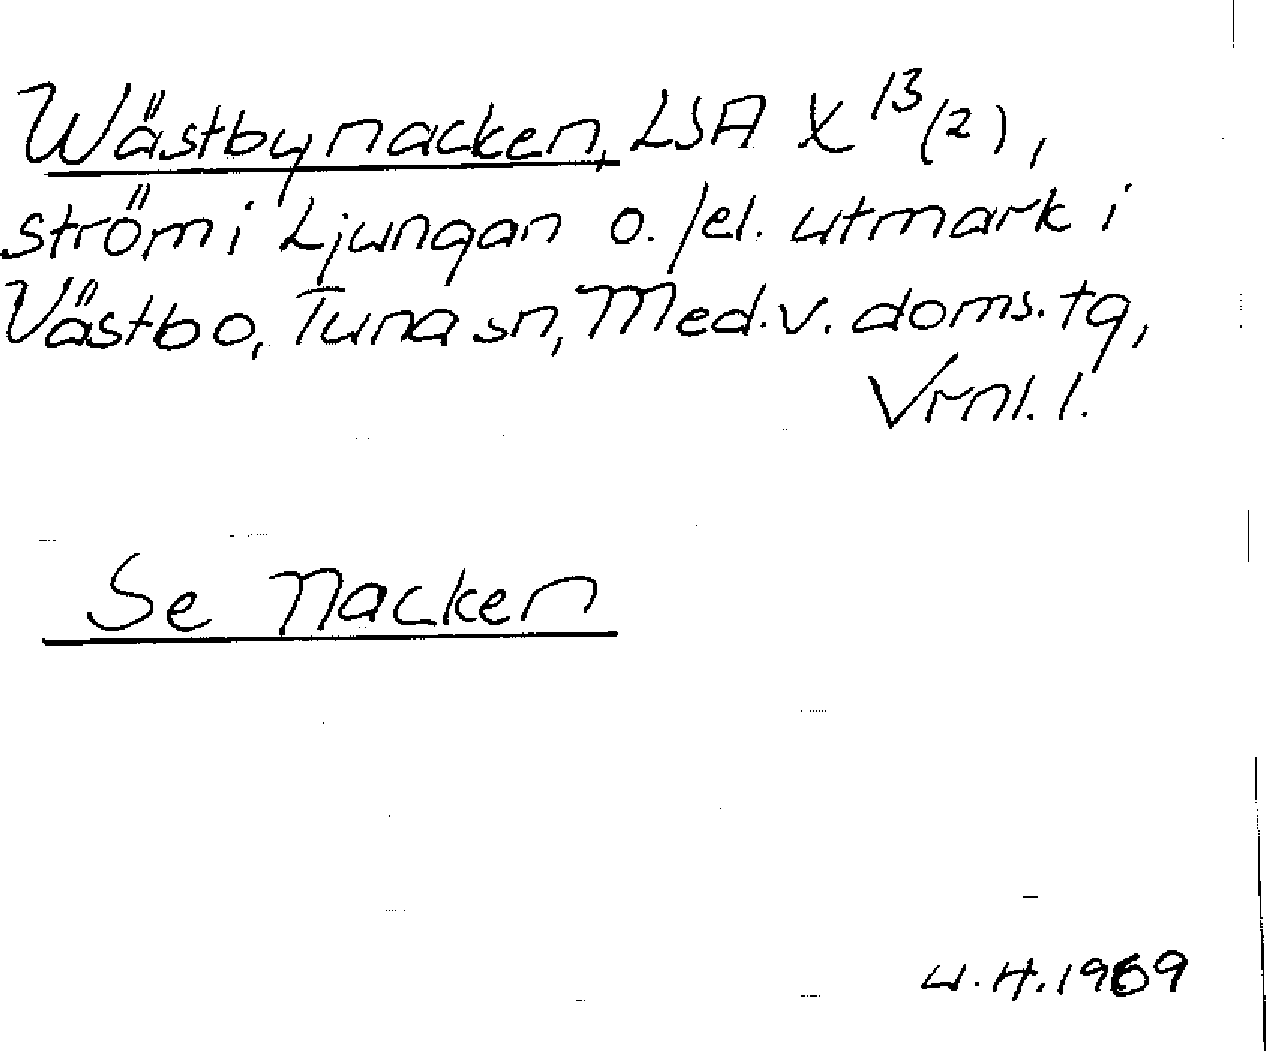 Wästbynacken, LSA X 13(2),
ström i Ljungan o./el. utmark i
Västbo, Tuna sn, Med. v. doms. tg,
Vrnl. l.
Se Nacken
U.H. 1969